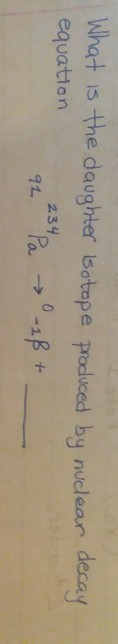 What is the daughter isotope produced by nuclear decay
equation
²³⁴₉₁Pa → ⁰₋₁β + ____